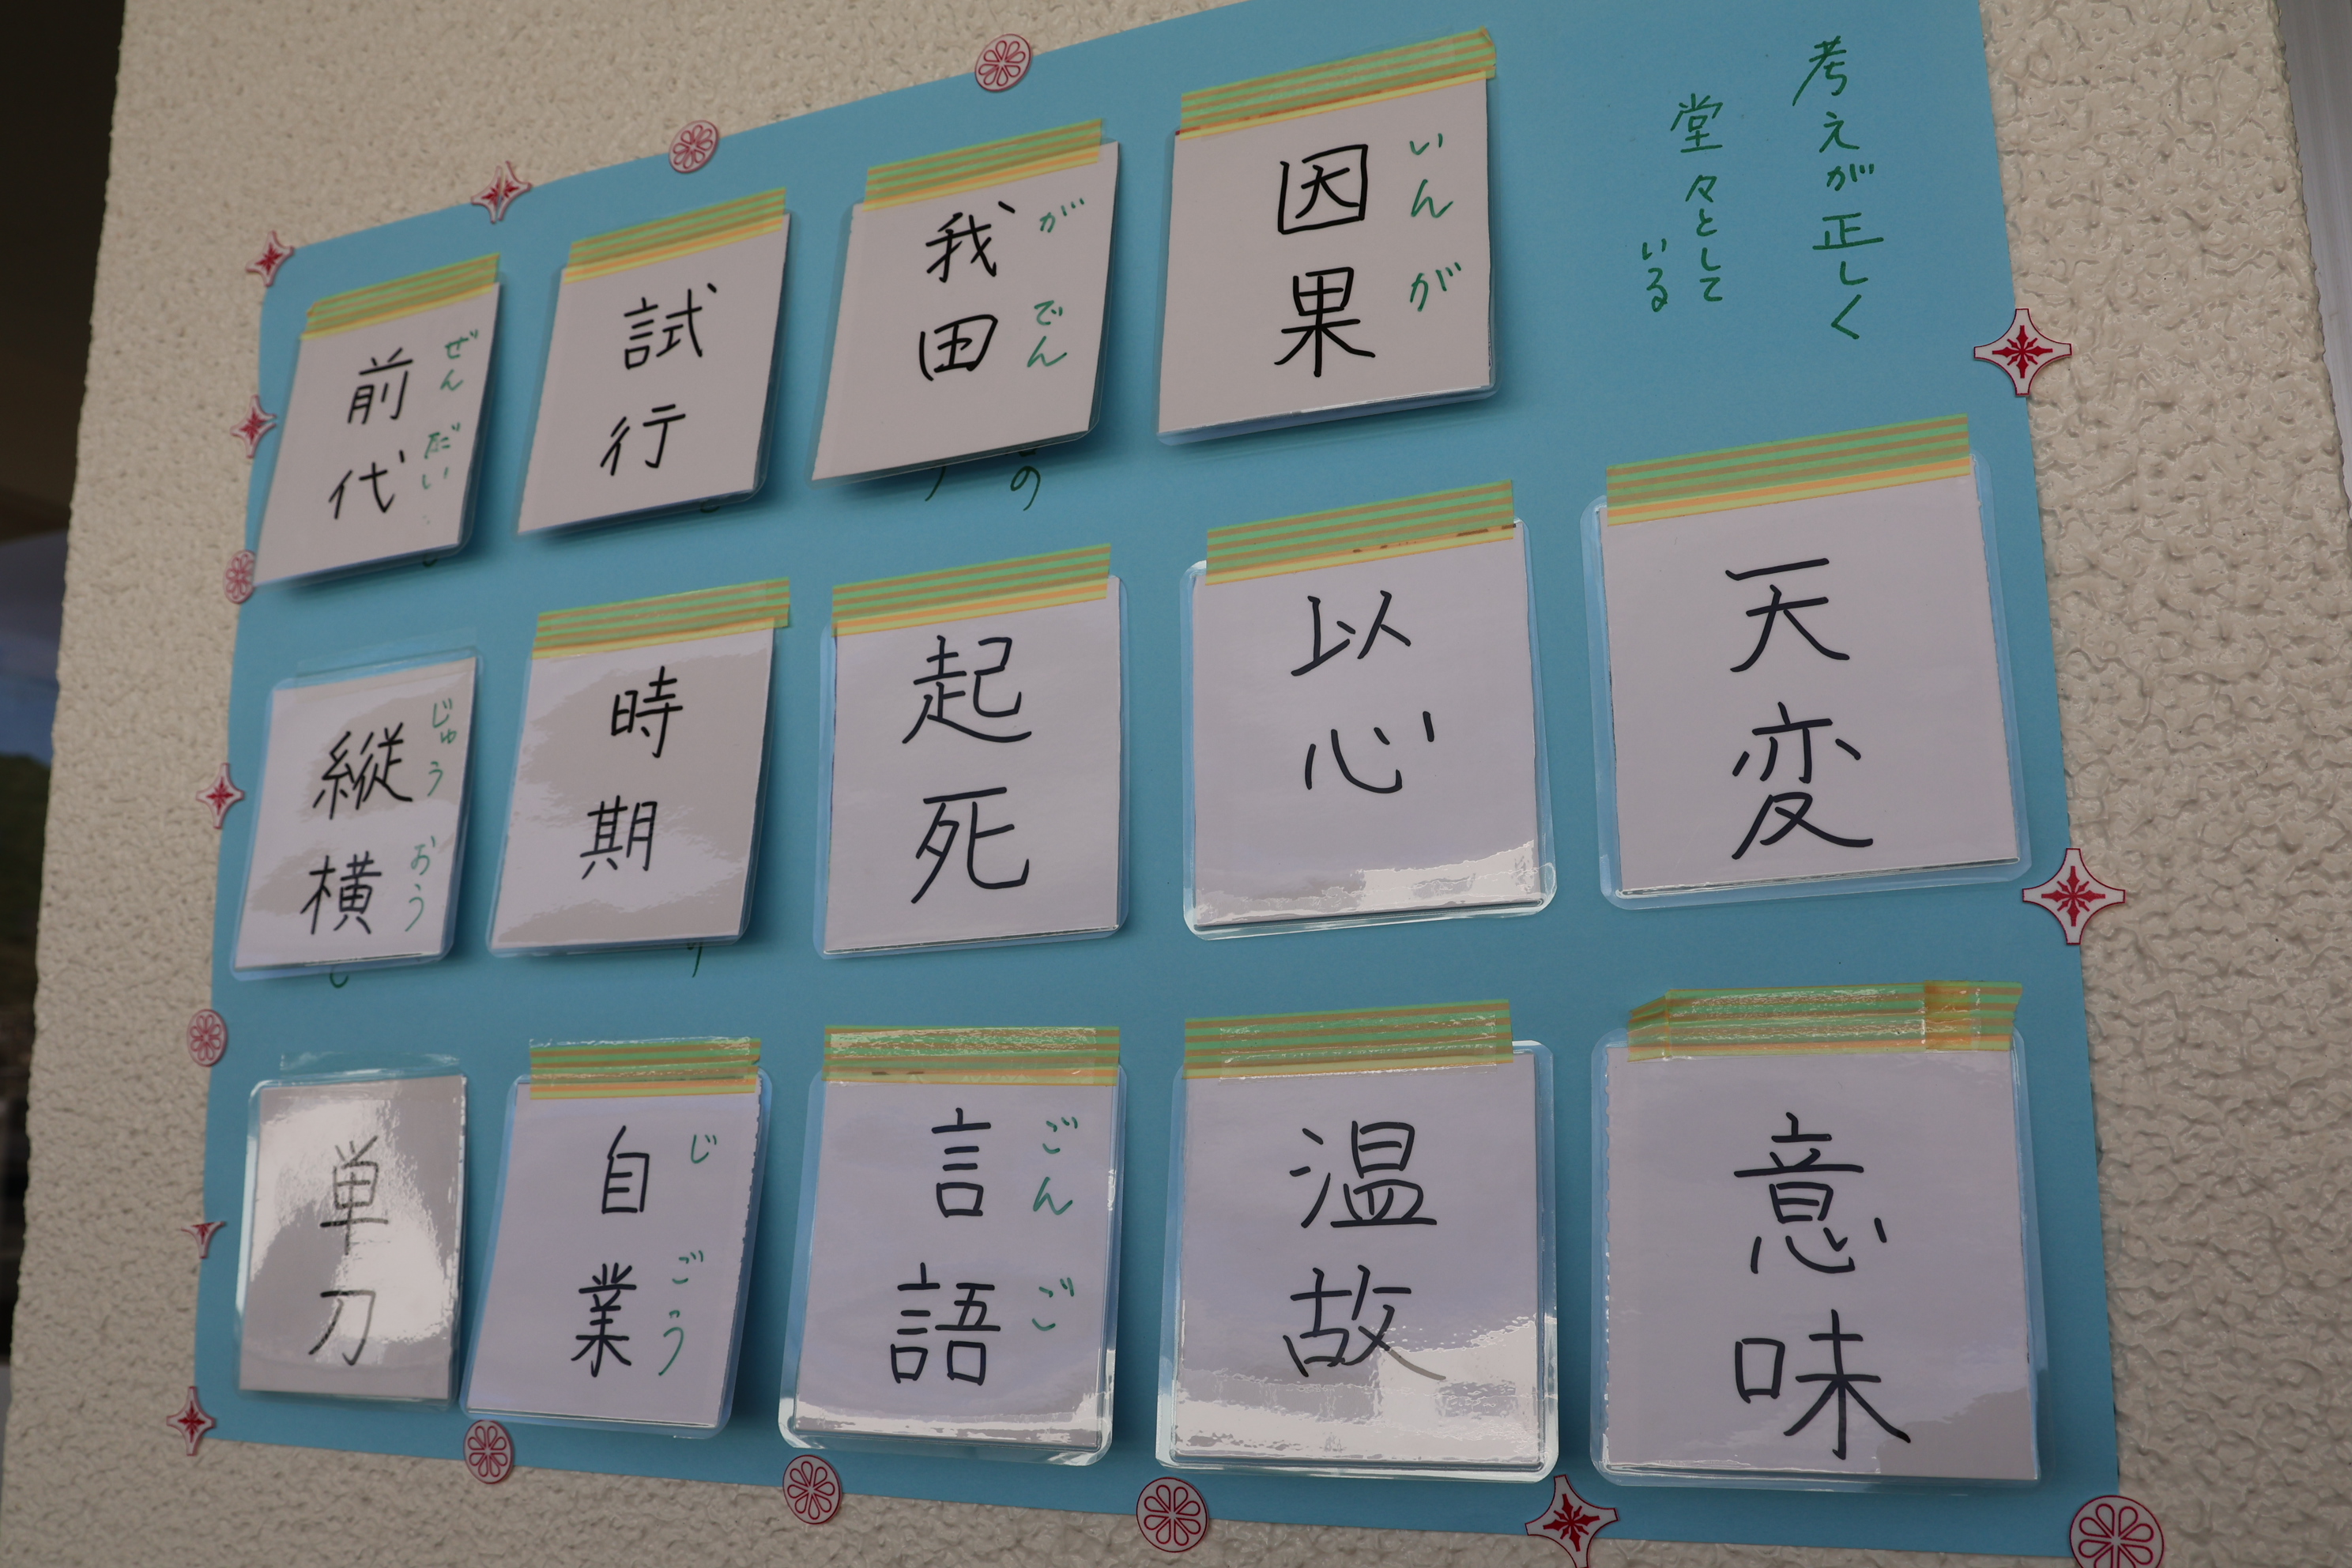 考えが正しく
堂々として
いる
因果
いんが
我田
がでん
試行
前代
ぜんだい
天変
以心
起死
時期
縦横
じゅうおう
意味
温故
言語
ごんご
自業
じごう
単刀